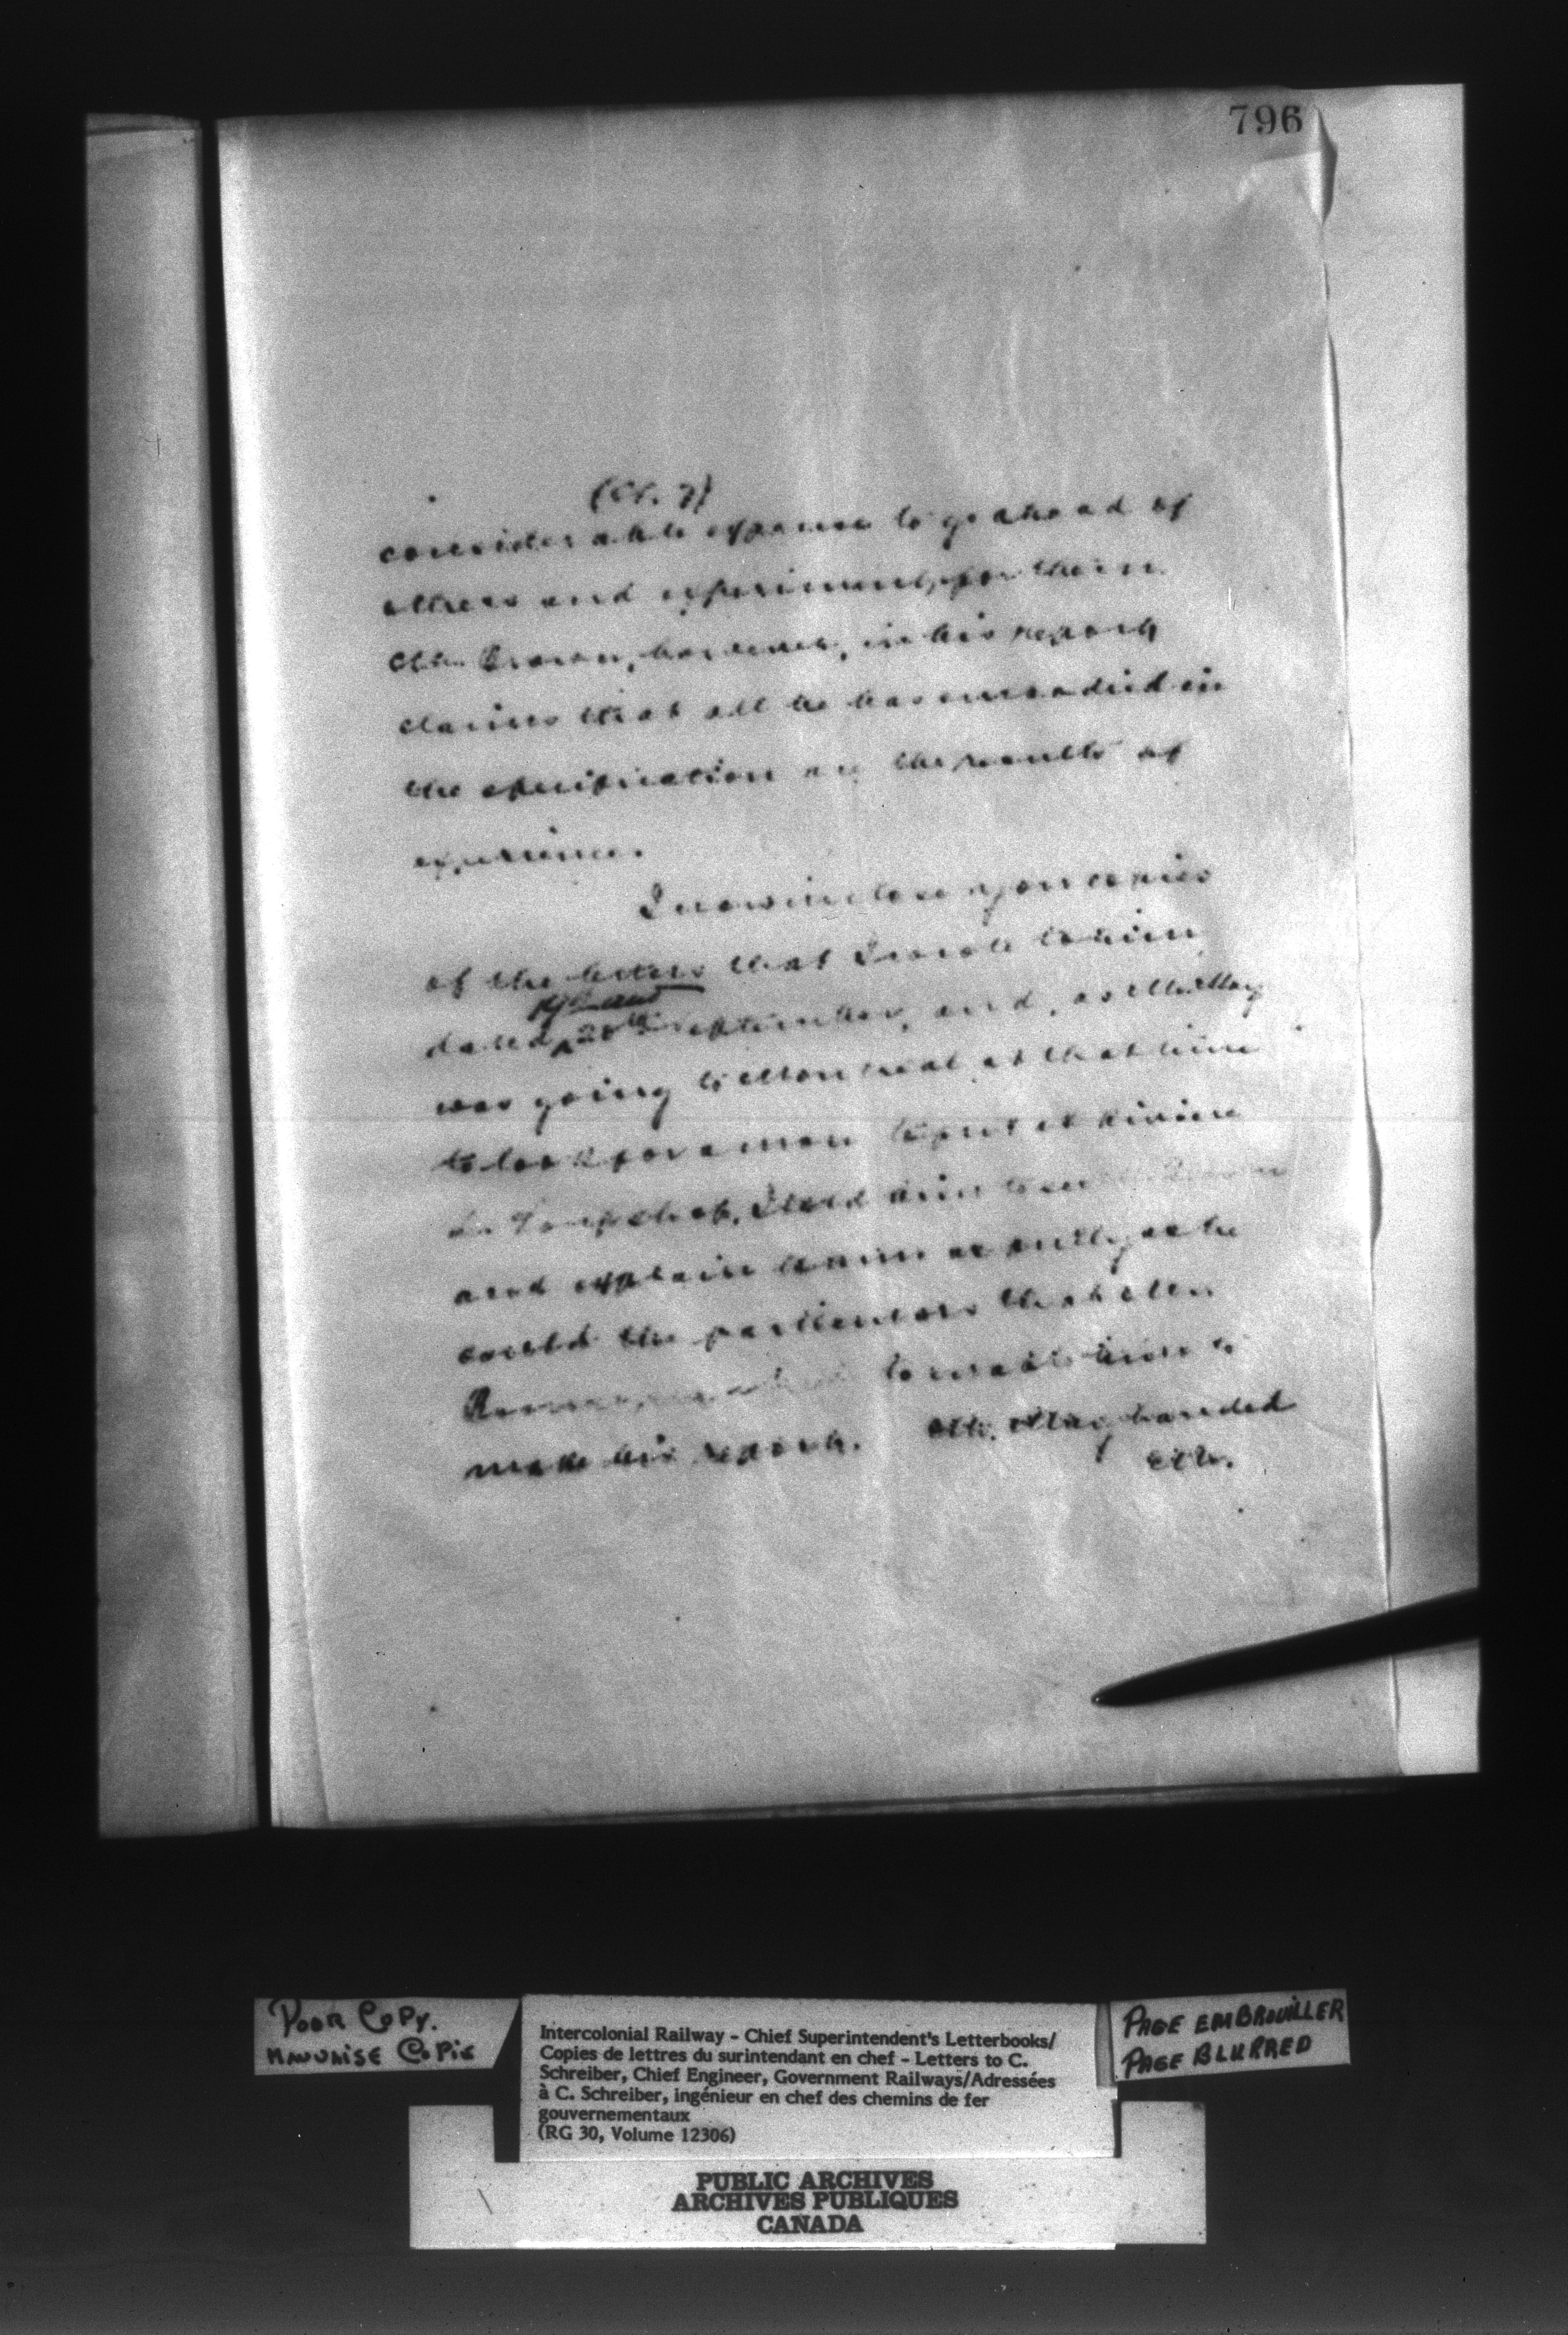 796
considerable expense to go ahead of
others and experiment for them
Mr. Brown, however, in his report
claims that all he has embodied in
the specification are the results of
experience.
I now inclose you copies
of the letters that I wrote to him
and
dated 20th September, and, as
was going to Montreal at that time
to look for a man to put at Riviere
du Loup shop, I told him to see
and explain to him as fully as he
could the particulars that Mr.
to enable him to
make his report. Mr. handed
Poor Copy.
Mauvaise Copie
Intercolonial Railway - Chief Superintendent's Letterbooks/
Copies de lettres du surintendant en chef - Letters to C.
Schreiber, Chief Engineer, Government Railways/Adressées
à C. Schreiber, ingénieur en chef des chemins de fer
gouvernementaux
(RG 30, Volume 12306)
PAGE EMBROUILLER
PAGE BLURRED
PUBLIC ARCHIVES
ARCHIVES PUBLIQUES
CANADA